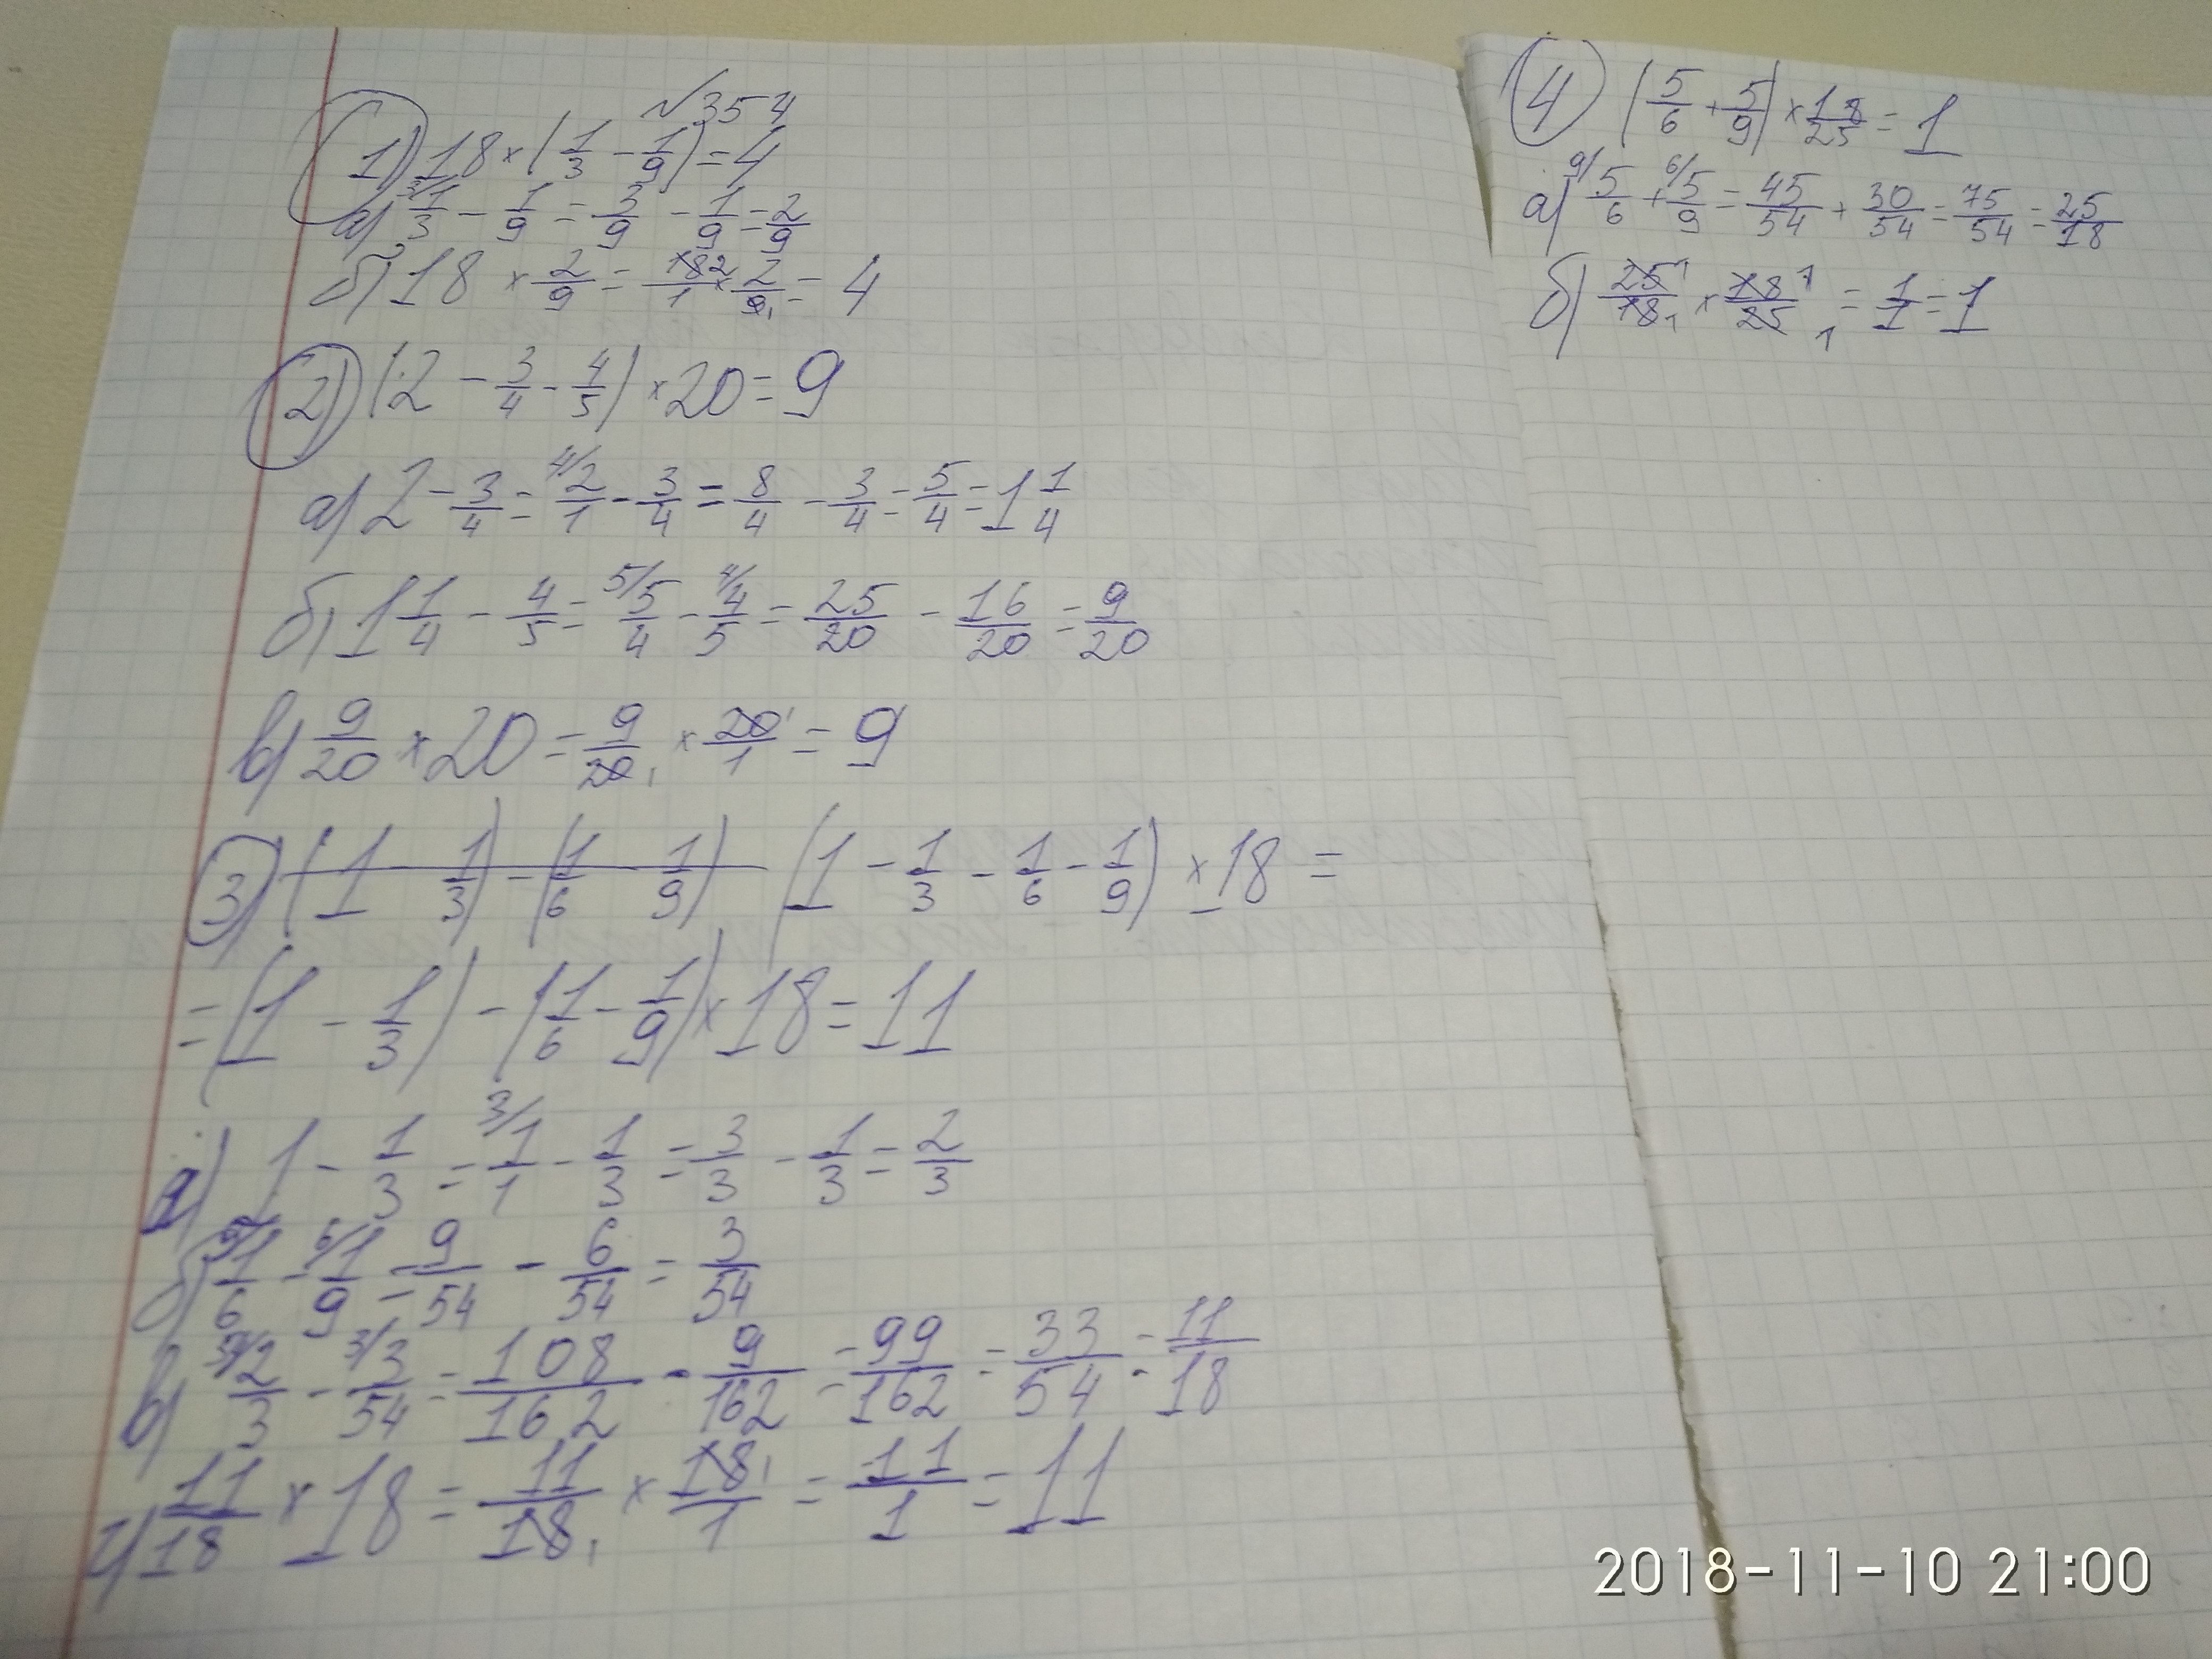 №354
1) 18 × (1/3 - 1/9) = 4
а) 3/ 1/3 - 1/9 = 3/9 - 1/9 = 2/9
б) 18 × 2/9 = 18 2/1 × 2/9 1 = 4
2) (2 - 3/4 - 4/5) × 20 = 9
а) 2 - 3/4 = 4/ 2/1 - 3/4 = 8/4 - 3/4 = 5/4 = 1 1/4
б) 1 1/4 - 4/5 = 5/ 5/4 - 4/ 4/5 = 25/20 - 16/20 = 9/20
в) 9/20 × 20 = 9/20 1 × 20 1/1 = 9
3) (1 - 1/3) - (1/6 - 1/9) (1 - 1/3 - 1/6 - 1/9) × 18 =
= (1 - 1/3) - (1/6 - 1/9) × 18 = 11
а) 1 - 1/3 = 3/ 1/1 - 1/3 = 3/3 - 1/3 = 2/3
б) 9/ 1/6 - 6/ 1/9 = 9/54 - 6/54 = 3/54
в) 2/3 - 3/ 3/54 = 108/162 - 9/162 = 99/162 = 33/54 = 11/18
г) 11/18 × 18 = 11/18 1 × 18 1/1 = 11/1 = 11
4) (5/6 + 5/9) × 18/25 = 1
а) 9/ 5/6 + 6/ 5/9 = 45/54 + 30/54 = 75/54 = 25/18
б) 25 1/18 1 × 18 1/25 1 = 1/1 = 1
2018-11-10 21:00